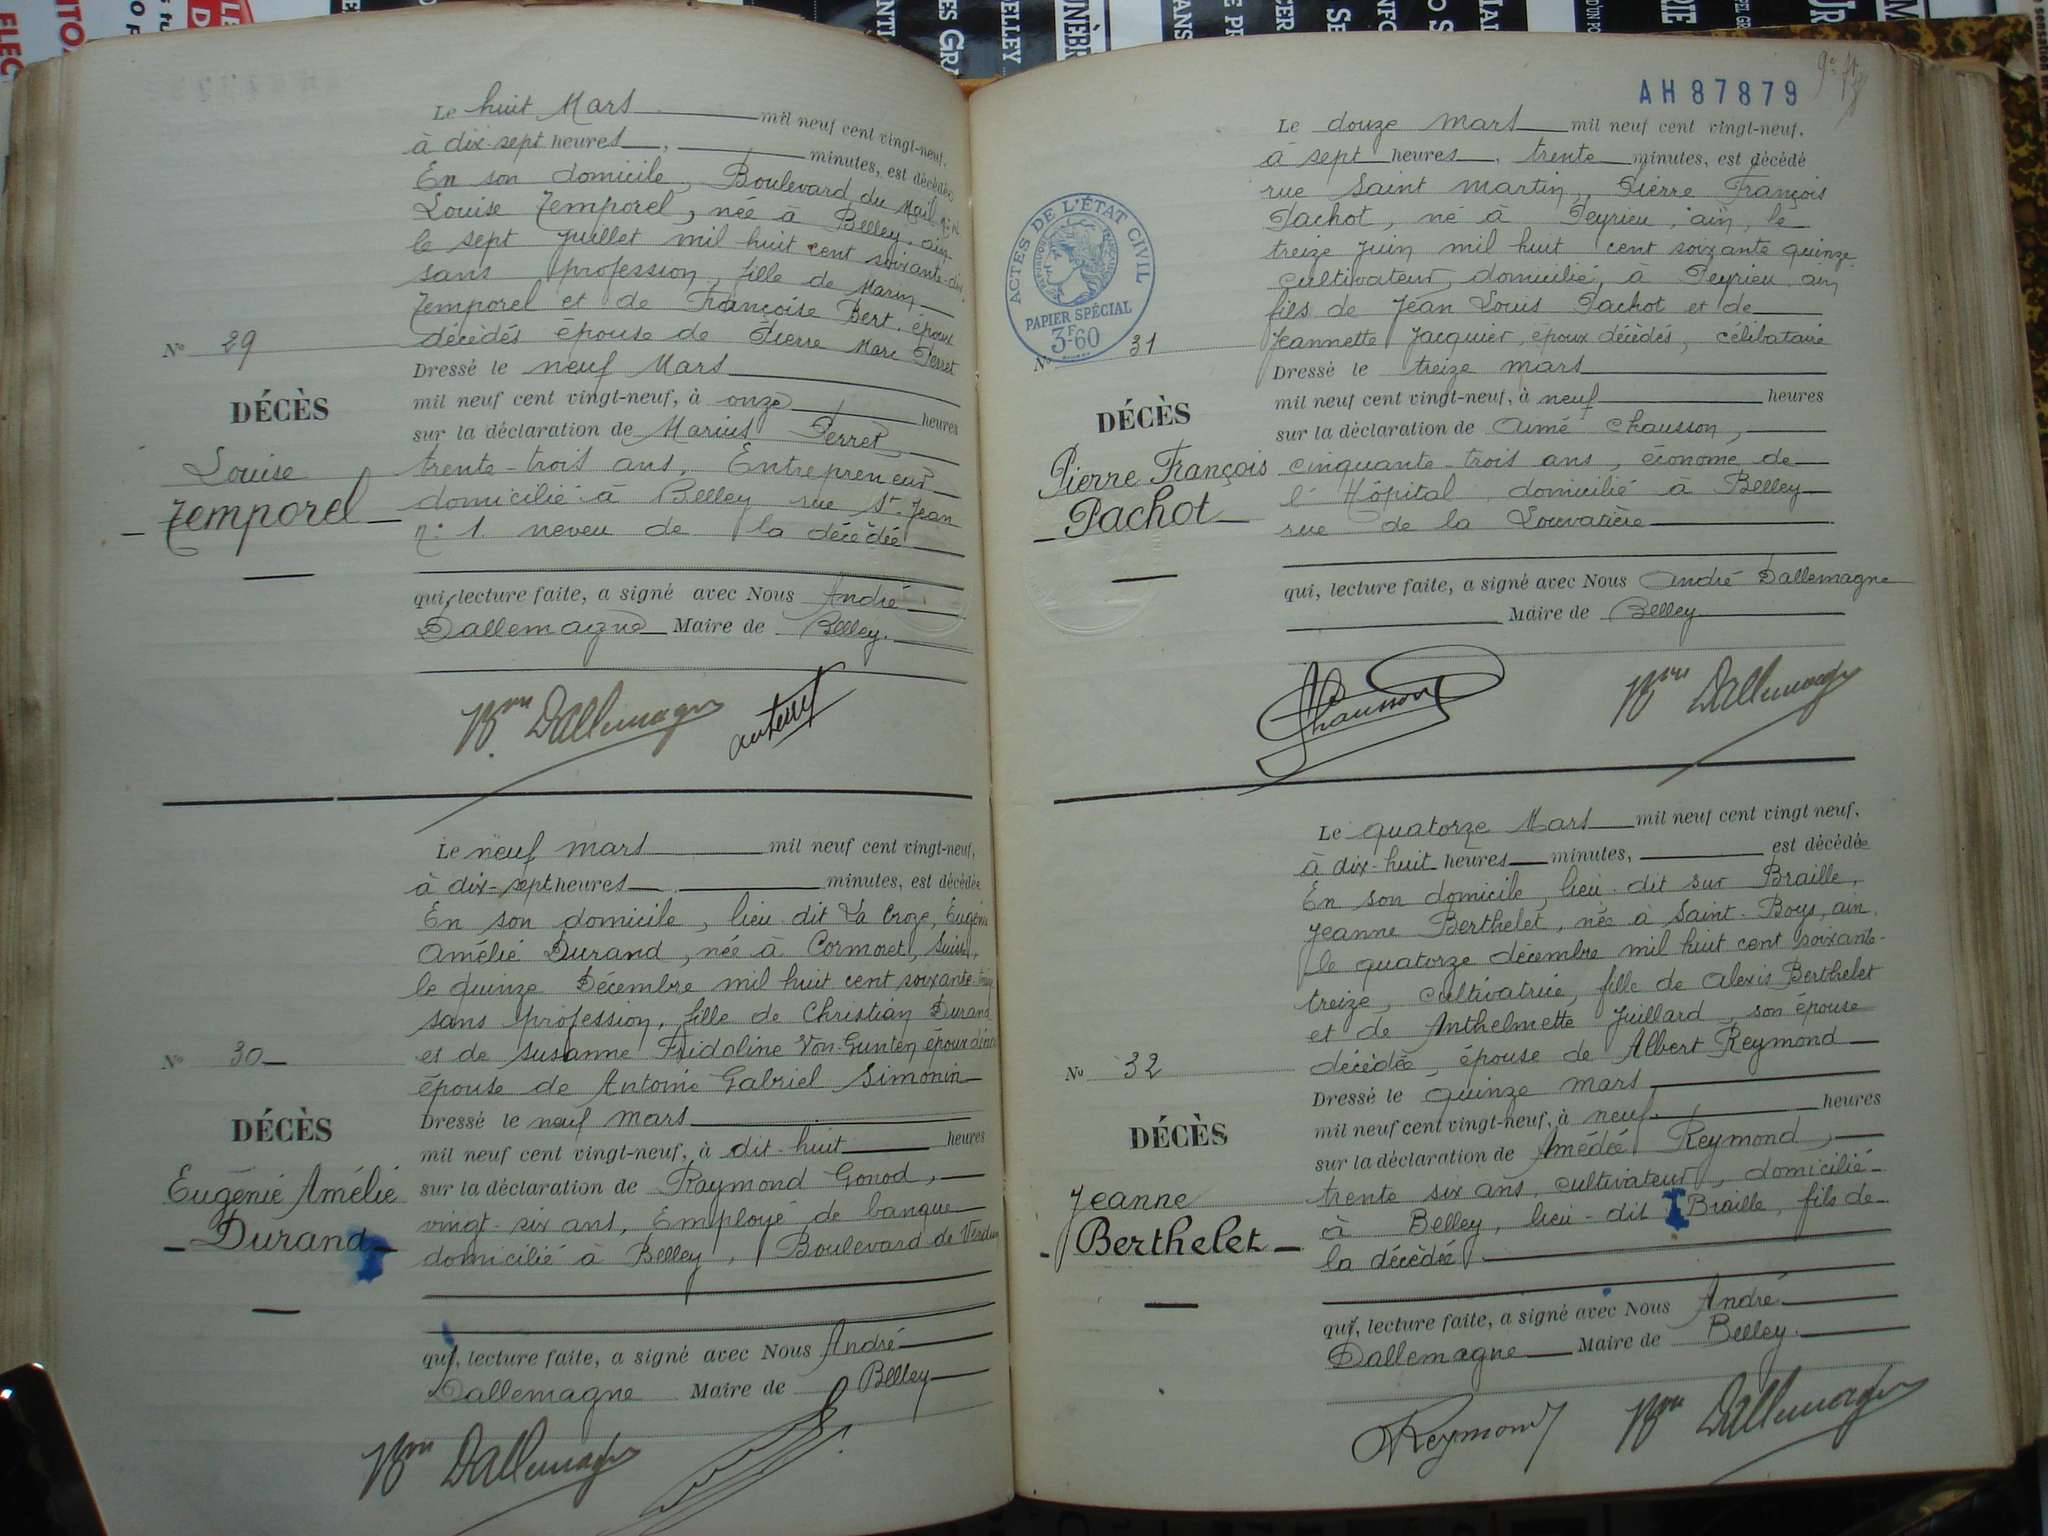 Le huit Mars mil neuf cent vingt-neuf.
à dix-sept heures, minutes, est décédée
En son domicile, Boulevard du Mail
Louise Temporel, née à Belley, ain
le sept Juillet mil huit cent soixante-
sans profession, fille de Marin
Temporel et de Françoise Bert, époux
décédés épouse de Pierre Marc Perret
Nº 29
Dressé le neuf Mars
mil neuf cent vingt-neuf, à onze heures
DÉCÈS
sur la déclaration de Marius Perret
Louise
trente-trois ans, Entrepreneur
Temporel
domicilié à Belley rue St Jean
nº 1. neveu de la décédée
qui, lecture faite, a signé avec Nous André
Dallemagne Maire de Belley.
Bon Dallemagne
Le neuf mars mil neuf cent vingt-neuf,
à dix-sept heures minutes, est décédée
En son domicile, lieu-dit La Croze, Eugénie
Amélie Durand, née à Cormoret, Suisse,
le quinze Décembre mil huit cent soixante-
sans profession, fille de Christian Durand
et de Susanne Fridoline Von-Gunten époux
Nº 30
épouse de Antoine Gabriel Simonin
Dressé le neuf mars
DÉCÈS
mil neuf cent vingt-neuf, à dit-huit heures
Eugénie Amélie
sur la déclaration de Raymond Gonod,
Durand
vingt-six ans, Employé de banque
domicilié à Belley, Boulevard de Verdun
qui, lecture faite, a signé avec Nous André
Dallemagne Maire de Belley
Bon Dallemagne
AH87879
Le douze mars mil neuf cent vingt-neuf,
à sept heures, trente minutes, est décédé
rue Saint Martin, Pierre François
Pachot, né à Peyrieu, ain, le
treize Juin mil huit cent soixante quinze
cultivateur, domicilié, à Peyrieu ain
fils de Jean Louis Pachot et de
Jeannette Jacquier, époux décédés, célibataire
ACTES DE L'ÉTAT CIVIL
PAPIER SPÉCIAL
3F60
Nº 31
Dressé le treize mars
mil neuf cent vingt-neuf, à neuf heures
DÉCÈS
sur la déclaration de Aimé Chausson,
Pierre François
cinquante-trois ans, économe de
Pachot
l'Hôpital, domicilié à Belley
rue de la Louvatière
qui, lecture faite, a signé avec Nous André Dallemagne
Maire de Belley
Chausson
Bon Dallemagne
Le quatorze Mars mil neuf cent vingt neuf,
à dix-huit heures minutes, est décédée
En son domicile, lieu-dit sur Braille,
Jeanne Berthelet, née à Saint-Boys, ain,
le quatorze décembre mil huit cent soixante-
treize, cultivatrice, fille de Alexis Berthelet
et de Anthelmette Juillard, son épouse
Nº 32
décédée, épouse de Albert Reymond
Dressé le quinze mars
mil neuf cent vingt-neuf, à neuf. heures
DÉCÈS
sur la déclaration de Amédée Reymond,
Jeanne
trente six ans, cultivateur, domicilié
Berthelet
à Belley, lieu-dit Braille, fils de
la décédée
qui, lecture faite, a signé avec Nous André
Dallemagne Maire de Belley.
Reymond
Bon Dallemagne